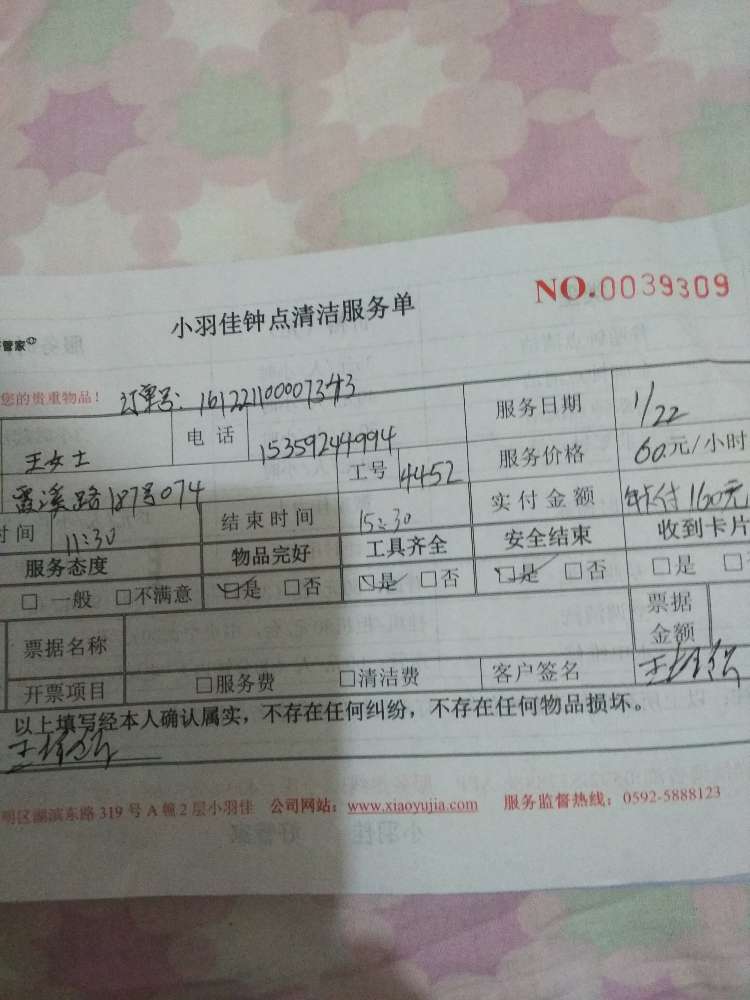 NO.0039309
小羽佳钟点清洁服务单
管家
您的贵重物品! 订单号: 161221100007343
王女士 电话 15359244994 服务日期 1/22
霞溪路187号074 工号 4452 服务价格 60元/小时
时间 11:30 结束时间 15:30 实付金额 160元
服务态度 物品完好 工具齐全 安全结束 收到卡片
□ 一般 □不满意 □是 □否 □是 □否 □是 □否 □是 □
票据名称 票据金额
开票项目 □服务费 □清洁费 客户签名
以上填写经本人确认属实，不存在任何纠纷，不存在任何物品损坏。
明区湖滨东路 319 号 A 幢 2 层小羽佳 公司网站: www.xiaoyujia.com 服务监督热线: 0592-5888123